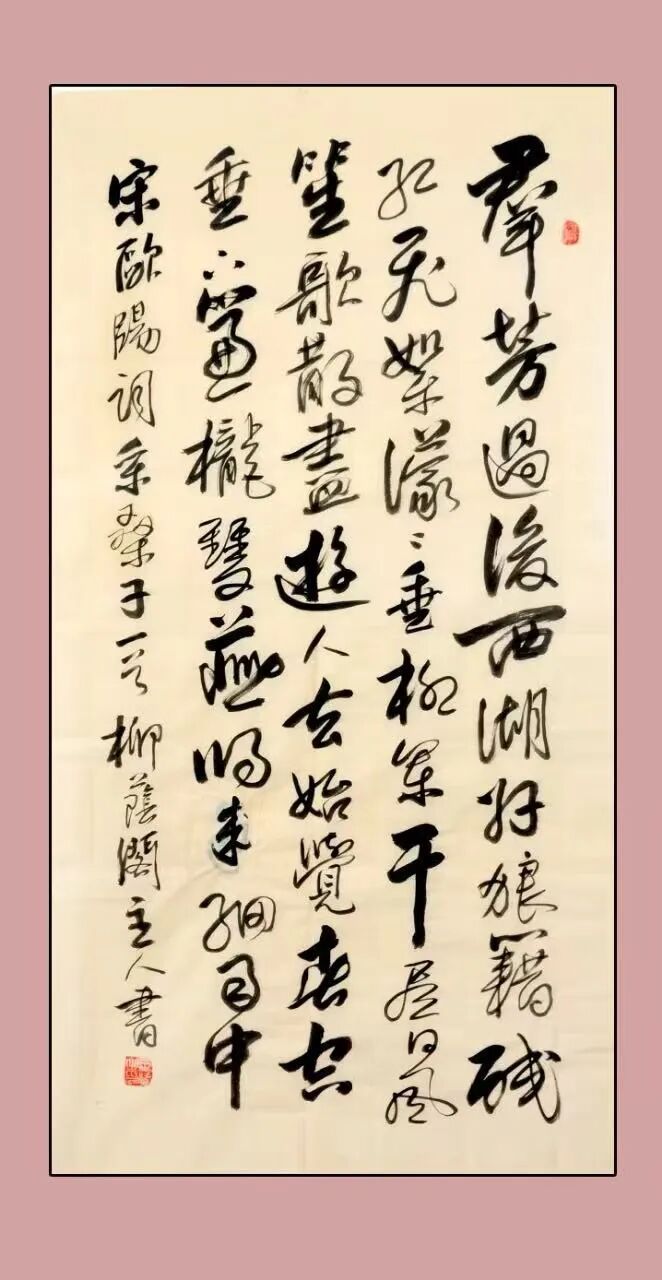 群芳過後西湖好狼籍殘
紅飛絮濛〻垂柳闌干尽日風
笙歌散盡遊人去始覺春空
垂下簾櫳雙燕歸来細雨中
宋歐陽詞采桑子一首柳蔭閣主人書